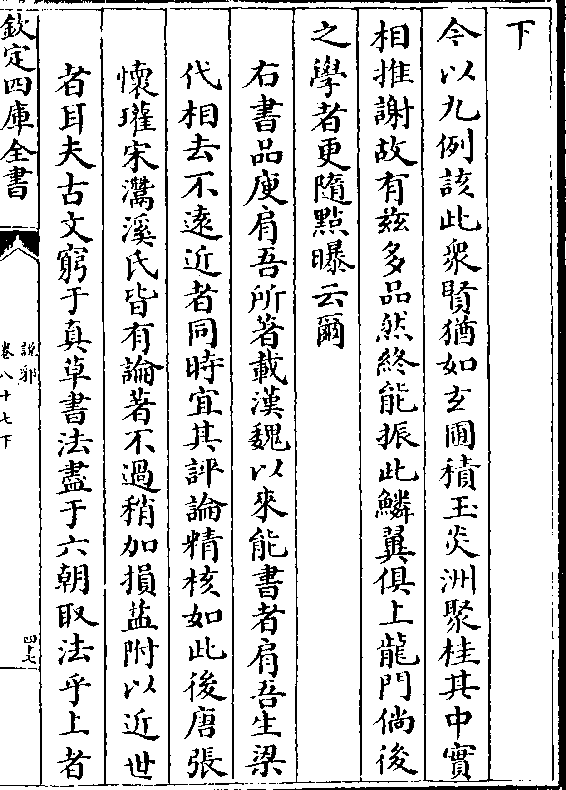 下
今以九例該此衆賢猶如玄圃積玉炎洲聚桂其中實
相推謝故有兹多品然終能振此鱗翼俱上龍門倘後
之學者更隨點曝云爾
右書品庾肩吾所著載漢魏以來能書者肩吾生梁
代相去不遠近者同時宜其評論精核如此後唐張
懷瓘宋灊溪氏皆有論著不過稍加損益附以近世
者耳夫古文窮于真草書法盡于六朝取法乎上者
欽定四庫全書
說郛
卷八十七下
四七